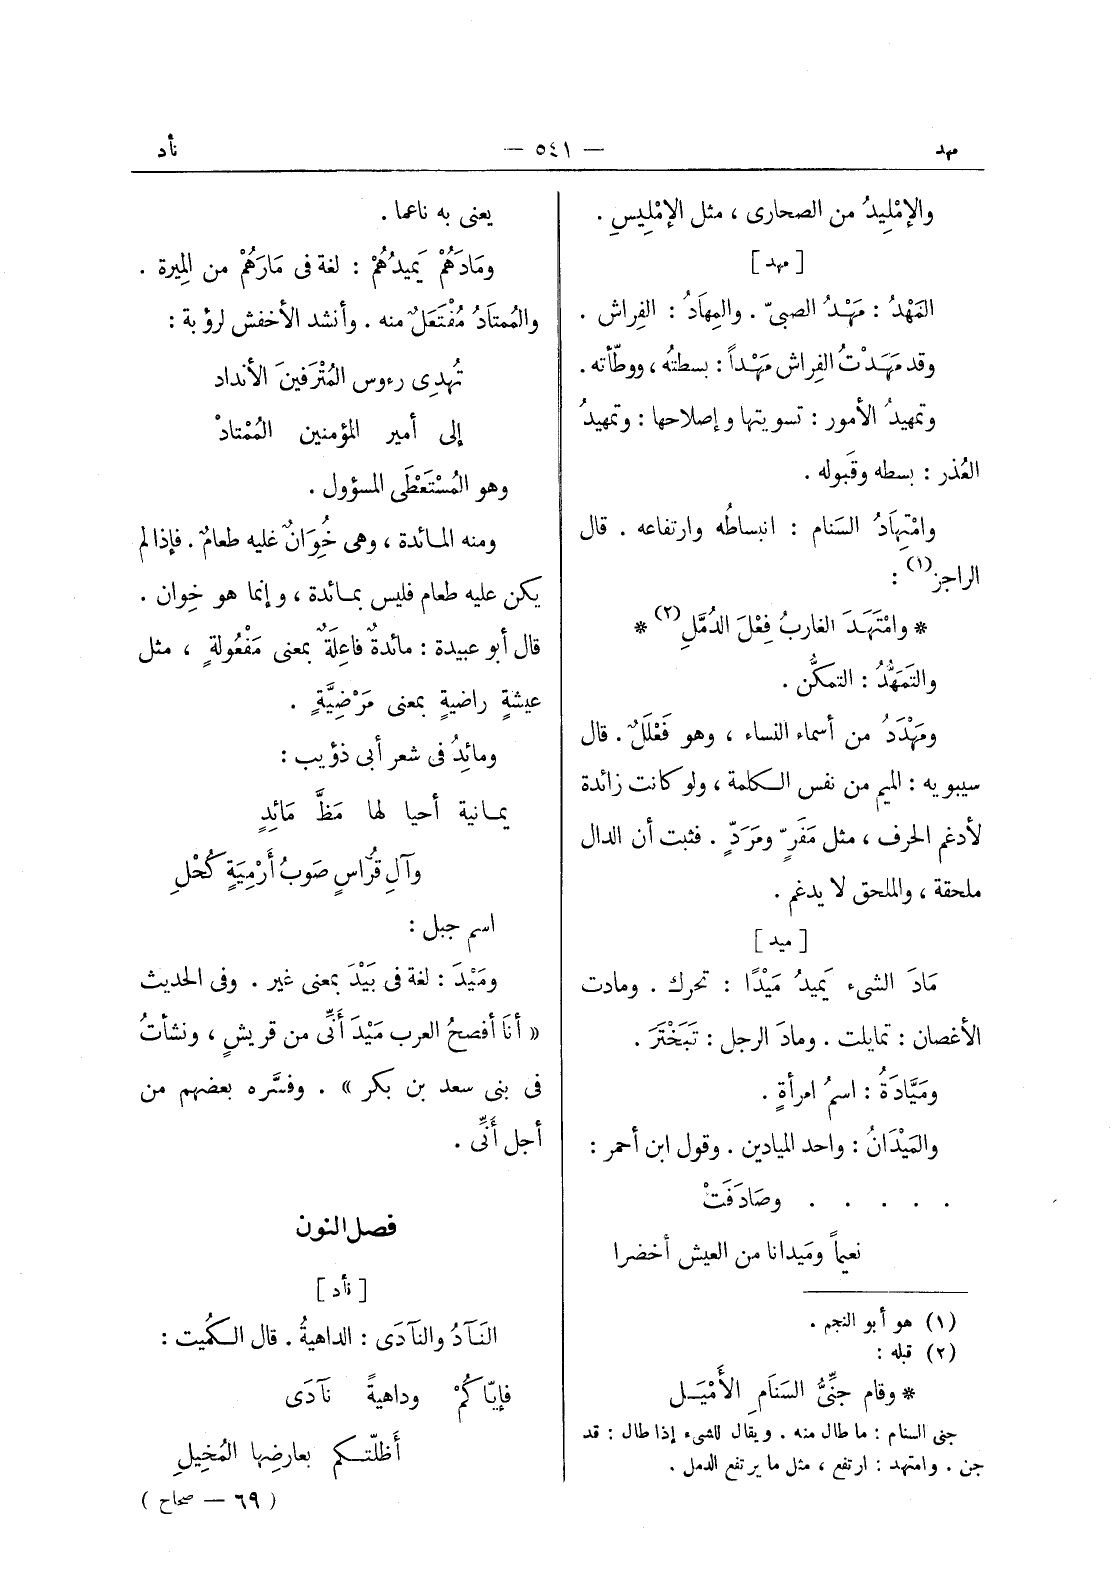 مهد
— ٥٤١ —
نأد
والإمْلِيدُ من الصحارى ، مثل الإمْلِيسِ .
[ مهد ]
المَهْدُ : مَهْدُ الصبىّ . والمِهادُ : الفِراش .
وقد مَهَدْتُ الفِراش مَهْداً : بسطتُه ، ووطّأته .
وتمهيدُ الأمور : تسويتها وإصلاحها : وتمهيدُ
العُذر : بسطه وقَبوله .
وامْتِهَادُ السَنام : انبساطُه وارتفاعه . قال
الراجز(١) :
* وامْتَهَدَ الغاربُ فِعْلَ الدُمَّلِ(٢) *
والتَمَهُّدُ : التمكّن .
ومَهْدَدُ من أسماء النساء ، وهو فَعْلَلٌ . قال
سيبويه : الميم من نفس الكلمة ، ولو كانت زائدة
لأدغم الحرف ، مثل مَفَرٍّ ومَرَدٍّ . فثبت أن الدال
ملحقة ، والملحق لا يدغم .
[ ميد ]
مَادَ الشىء يَمِيدُ مَيْدًا : تحرك . ومادت
الأغصان : تمايلت . ومادَ الرجل : تَبَخْتَرَ .
ومَيَّادَةُ : اسمُ امرأةٍ .
والمَيْدَانُ : واحد الميادين . وقول ابن أحمر :
. . . . . وصَادَفَتْ
نعيماً ومَيدانا من العيش أخضرا
(١) هو أبو النجم .
(٢) قبله :
* وقام جنِّىُّ السَنَامِ الأَمْيَلِ
جنى السنام : ما طال منه . ويقال للشىء إذا طال : قد
جن . وامتهد : ارتفع ، مثل ما يرتفع الدمل .
يعنى به ناعما .
ومَادَهُمْ يَمِيدُهُمْ : لغة فى مَارَهُمْ من المِيرة .
والمُمتَادُ مُفْتَعَلٌ منه . وأنشد الأخفش لرؤبة :
تُهدِى رءوس المُتْرَفينَ الأنداد
إلى أمير المؤمنين المُمْتادْ
وهو المُسْتَعْطَى المسؤول .
ومنه المائدة ، وهى خُِوَانٌ عليه طعامٌ . فإذا لم
يكن عليه طعام فليس بمائدة ، وإنما هو خِوان .
قال أبو عبيدة : مائدةٌ فاعِلَةٌ بمعنى مَفْعُولةٍ ، مثل
عيشةٍ راضيةٍ بمعنى مَرْضِيَّةٍ .
ومائِدُ فى شعر أبى ذؤيب :
يمانية أحيا لها مَظَّ مَائِدٍ
وآلِ قُرَاسٍ صَوبُ أَرْمِيَةٍ كُحْلِ
اسم جبل :
ومَيْدَ : لغة فى بَيْدَ بمعنى غير . وفى الحديث
« أنَا أفصحُ العرب مَيْدَ أَنِّى من قريشٍ ، ونشأتُ
فى بنى سعد بن بكر » . وفسَّره بعضهم من
أجل أَنِّى .
فصل النون
[ نأد ]
النَآدُ والنَآدَى : الداهيةُ . قال الكُميت :
فإيّاكُمْ وداهيةً نَآدَى
أَظلّتكم بعارضِها المُخيلِ
( ٦٩ — صحاح )